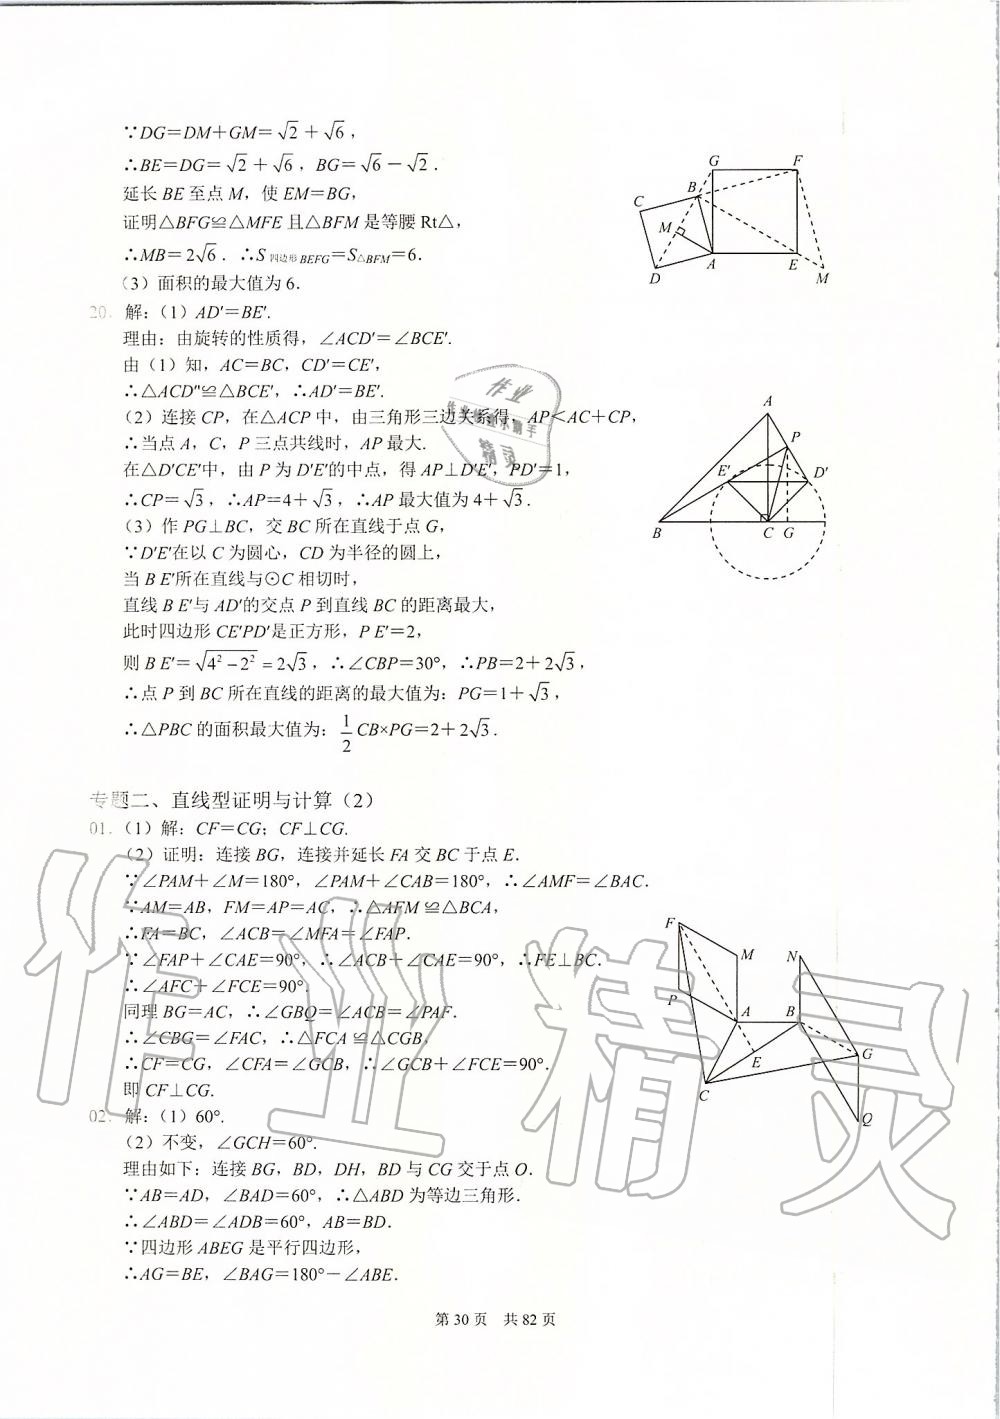 ∵DG=DM+GM=√2+√6，
∴BE=DG=√2+√6，BG=√6−√2．
延长 BE 至点 M，使 EM=BG，
证明△BFG≌△MFE 且△BFM 是等腰 Rt△，
∴MB=2√6．∴S四边形BEFG=S△BFM=6．
（3）面积的最大值为6．
20．解：（1）AD′=BE′.
理由：由旋转的性质得，∠ACD′=∠BCE′.
由（1）知，AC=BC，CD′=CE′，
∴△ACD″≌△BCE′，∴AD′=BE′.
（2）连接 CP，在△ACP 中，由三角形三边关系得，AP＜AC+CP，
∴当点 A，C，P 三点共线时，AP 最大.
在△D′CE′中，由 P 为 D′E′的中点，得 AP⊥D′E′，PD′=1，
∴CP=√3，∴AP=4+√3，∴AP 最大值为 4+√3．
（3）作 PG⊥BC，交 BC 所在直线于点 G，
∵D′E′在以 C 为圆心，CD 为半径的圆上，
当 B E′所在直线与⊙C 相切时，
直线 B E′与 AD′的交点 P 到直线 BC 的距离最大，
此时四边形 CE′PD′是正方形，P E′=2，
则 B E′=√(4²−2²)=2√3，∴∠CBP=30°，∴PB=2+2√3，
∴点 P 到 BC 所在直线的距离的最大值为：PG=1+√3，
∴△PBC 的面积最大值为：1/2 CB×PG=2+2√3.
专题二、直线型证明与计算（2）
01．（1）解：CF=CG；CF⊥CG.
（2）证明：连接 BG，连接并延长 FA 交 BC 于点 E．
∵∠PAM+∠M=180°，∠PAM+∠CAB=180°，∴∠AMF=∠BAC．
∵AM=AB，FM=AP=AC，∴△AFM ≌△BCA，
∴FA=BC，∠ACB=∠MFA=∠FAP．
∵∠FAP+∠CAE=90°，∴∠ACB+∠CAE=90°，∴FE⊥BC．
∴∠AFC+∠FCE=90°
同理 BG=AC，∴∠GBQ=∠ACB=∠PAF．
∴∠CBG=∠FAC，∴△FCA ≌△CGB，
∴CF=CG，∠CFA=∠GCB，∴∠GCB+∠FCE=90°．
即 CF⊥CG．
02．解：（1）60°.
（2）不变，∠GCH=60°.
理由如下：连接 BG，BD，DH，BD 与 CG 交于点 O．
∵AB=AD，∠BAD=60°，∴△ABD 为等边三角形．
∴∠ABD=∠ADB=60°，AB=BD．
∵四边形 ABEG 是平行四边形，
∴AG=BE，∠BAG=180°−∠ABE．
第 30 页 共 82 页
G F
B
C
M
D A E M
A
P
E′ D′
B C G
F
M N
P
A B
E G
C
Q
作业
精灵
作业精灵